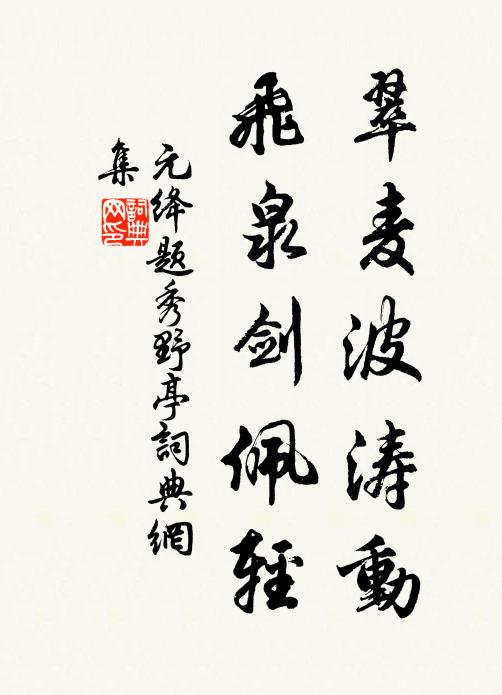 翠麦波涛動
飛泉剑佩輕
元绛題秀野亭詞典網
集
詞典网印